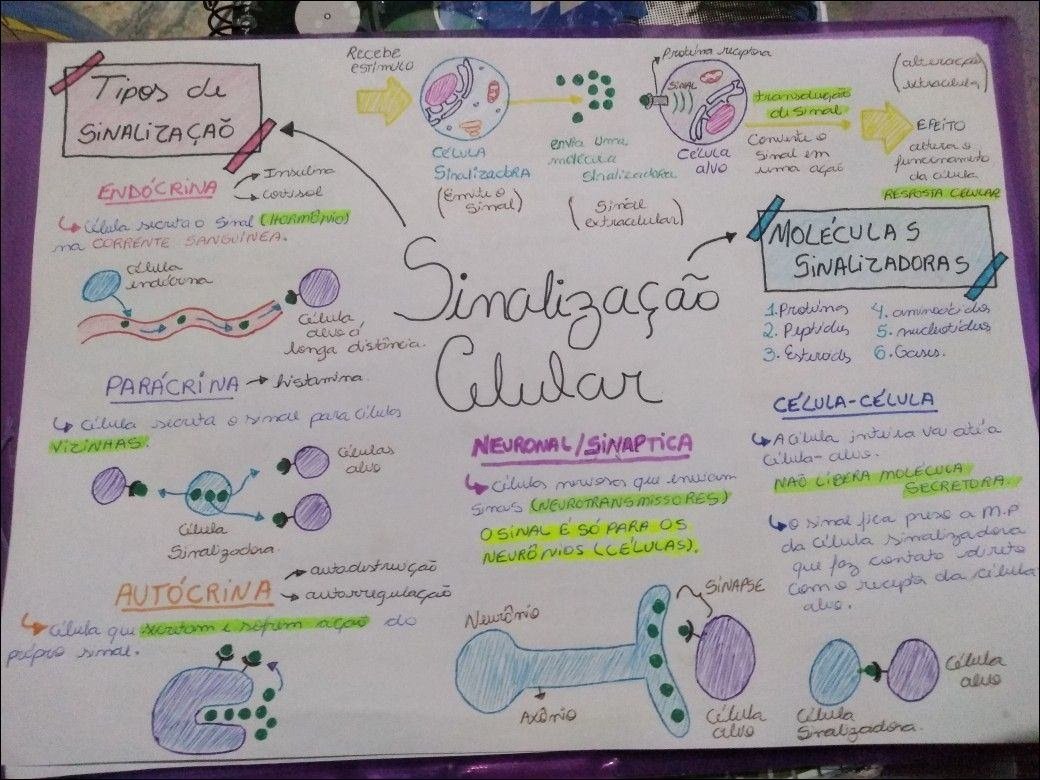 Tipos de
SINALIZAÇÃO
Recebe
estímulo
CÉLULA
Sinalizadora
(Emite o
Sinal)
envia uma
molécula
sinalizadora
(Sinal
extracelular)
Proteína receptora
SINAL
Célula
alvo
transdução
di sinal
Converte o
sinal em
uma ação
(alteração
EFEITO
altera o
funcionamento
da célula
RESPOSTA CELULAR
Sinalização
Celular
ENDÓCRINA
Insulina
cortisol
Célula secreta o sinal (HORMÔNIO)
na CORRENTE SANGUÍNEA.
Célula
endócrina
Célula
alvo á
longa distância.
PARÁCRINA → histamina.
Célula secreta o sinal para células
VIZINHAS.
Células
alvo
Célula
Sinalizadora.
AUTÓCRINA
autodistruição
autorregulação
Célula que secretam e sofrem ação do
próprio sinal.
MOLÉCULAS
SINALIZADORAS
1. Proteínas
2. Peptídeos
3. Esteroides
4. aminoácidos
5. nucleotídeos
6. Gases.
NEURONAL/SINAPTICA
Células nervosas que enviam
sinais (NEUROTRANSMISSORES)
O SINAL É SÓ PARA OS
NEURÔNIOS (CÉLULAS).
Neurônio
Axônio
SINAPSE
Célula
alvo
CÉLULA-CÉLULA
A célula inteira vai até a
célula-alvo.
NÃO LIBERA MOLÉCULA
SECRETORA.
O sinal fica preso a M.P
da célula sinalizadora
que faz contato direto
com o recepto da célula
alvo.
Célula
alvo
Célula
Sinalizadora.